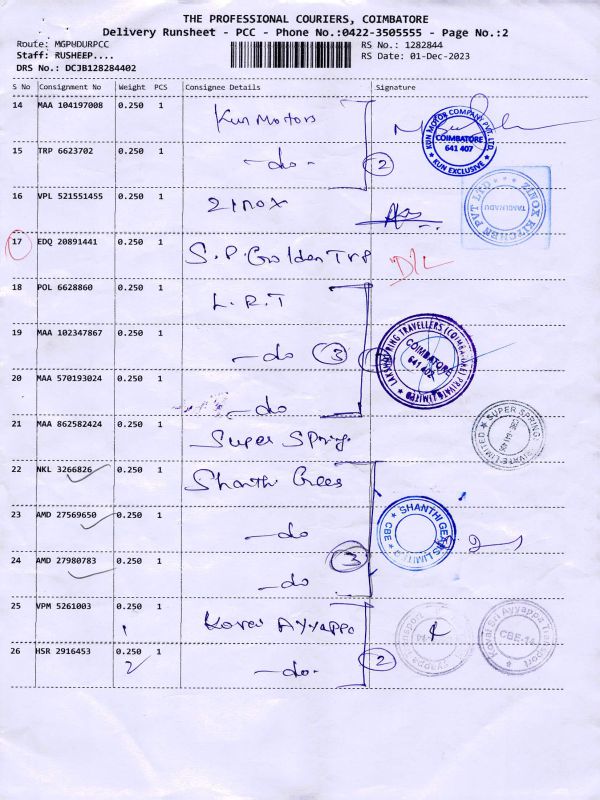 THE PROFESSIONAL COURIERS, COIMBATORE
Delivery Runsheet - PCC - Phone No.:0422-3505555 - Page No.:2
Route: MGPHDURPCC RS No.: 1282844
Staff: RUSHEEP.... RS Date: 01-Dec-2023
DRS No.: DCJB128284402
S No Consignment No Weight PCS Consignee Details Signature
14 MAA 104197008 0.250 1 Kun Motors
KUN MOTOR COMPANY PVT. LTD.
COIMBATORE
641 407
KUN EXCLUSIVE
15 TRP 6623702 0.250 1 -do- 2
16 VPL 521551455 0.250 1 Zinox
ZINOX KITCHEN PVT LTD
TAMILNADU
17 EDQ 20891441 0.250 1 S.P. Golden Trp D/L
18 POL 6628860 0.250 1 L.R.T
19 MAA 102347867 0.250 1 -do 3
COIMBATORE
641 402
20 MAA 570193024 0.250 1 -do
21 MAA 862582424 0.250 1 Super Spring
SUPER SPRING
22 NKL 3266826 0.250 1 Shanthi Gees
23 AMD 27569650 0.250 1 -do
SHANTHI GEARS LIMITED
CBE
24 AMD 27980783 0.250 1 -do 3
25 VPM 5261003 0.250 1 Kovai Ayyappa
1
Kovai Sri Ayyappa Transport
CBE-14
26 HSR 2916453 0.250 1 -do- 2
2